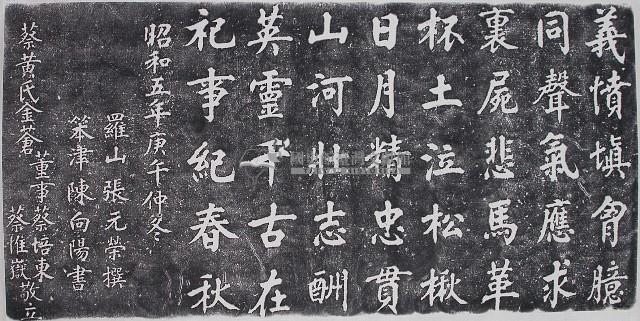 義憤塡胷臆
同聲氣應求
裹屍悲馬革
杯土泣松楸
日月精忠貫
山河壯志酬
英靈千古在
祀事紀春秋
昭和五年庚午仲冬
羅山張元榮撰
笨津陳向陽書
董事蔡培東
蔡惟嶽敬立
蔡黃氏金蒼